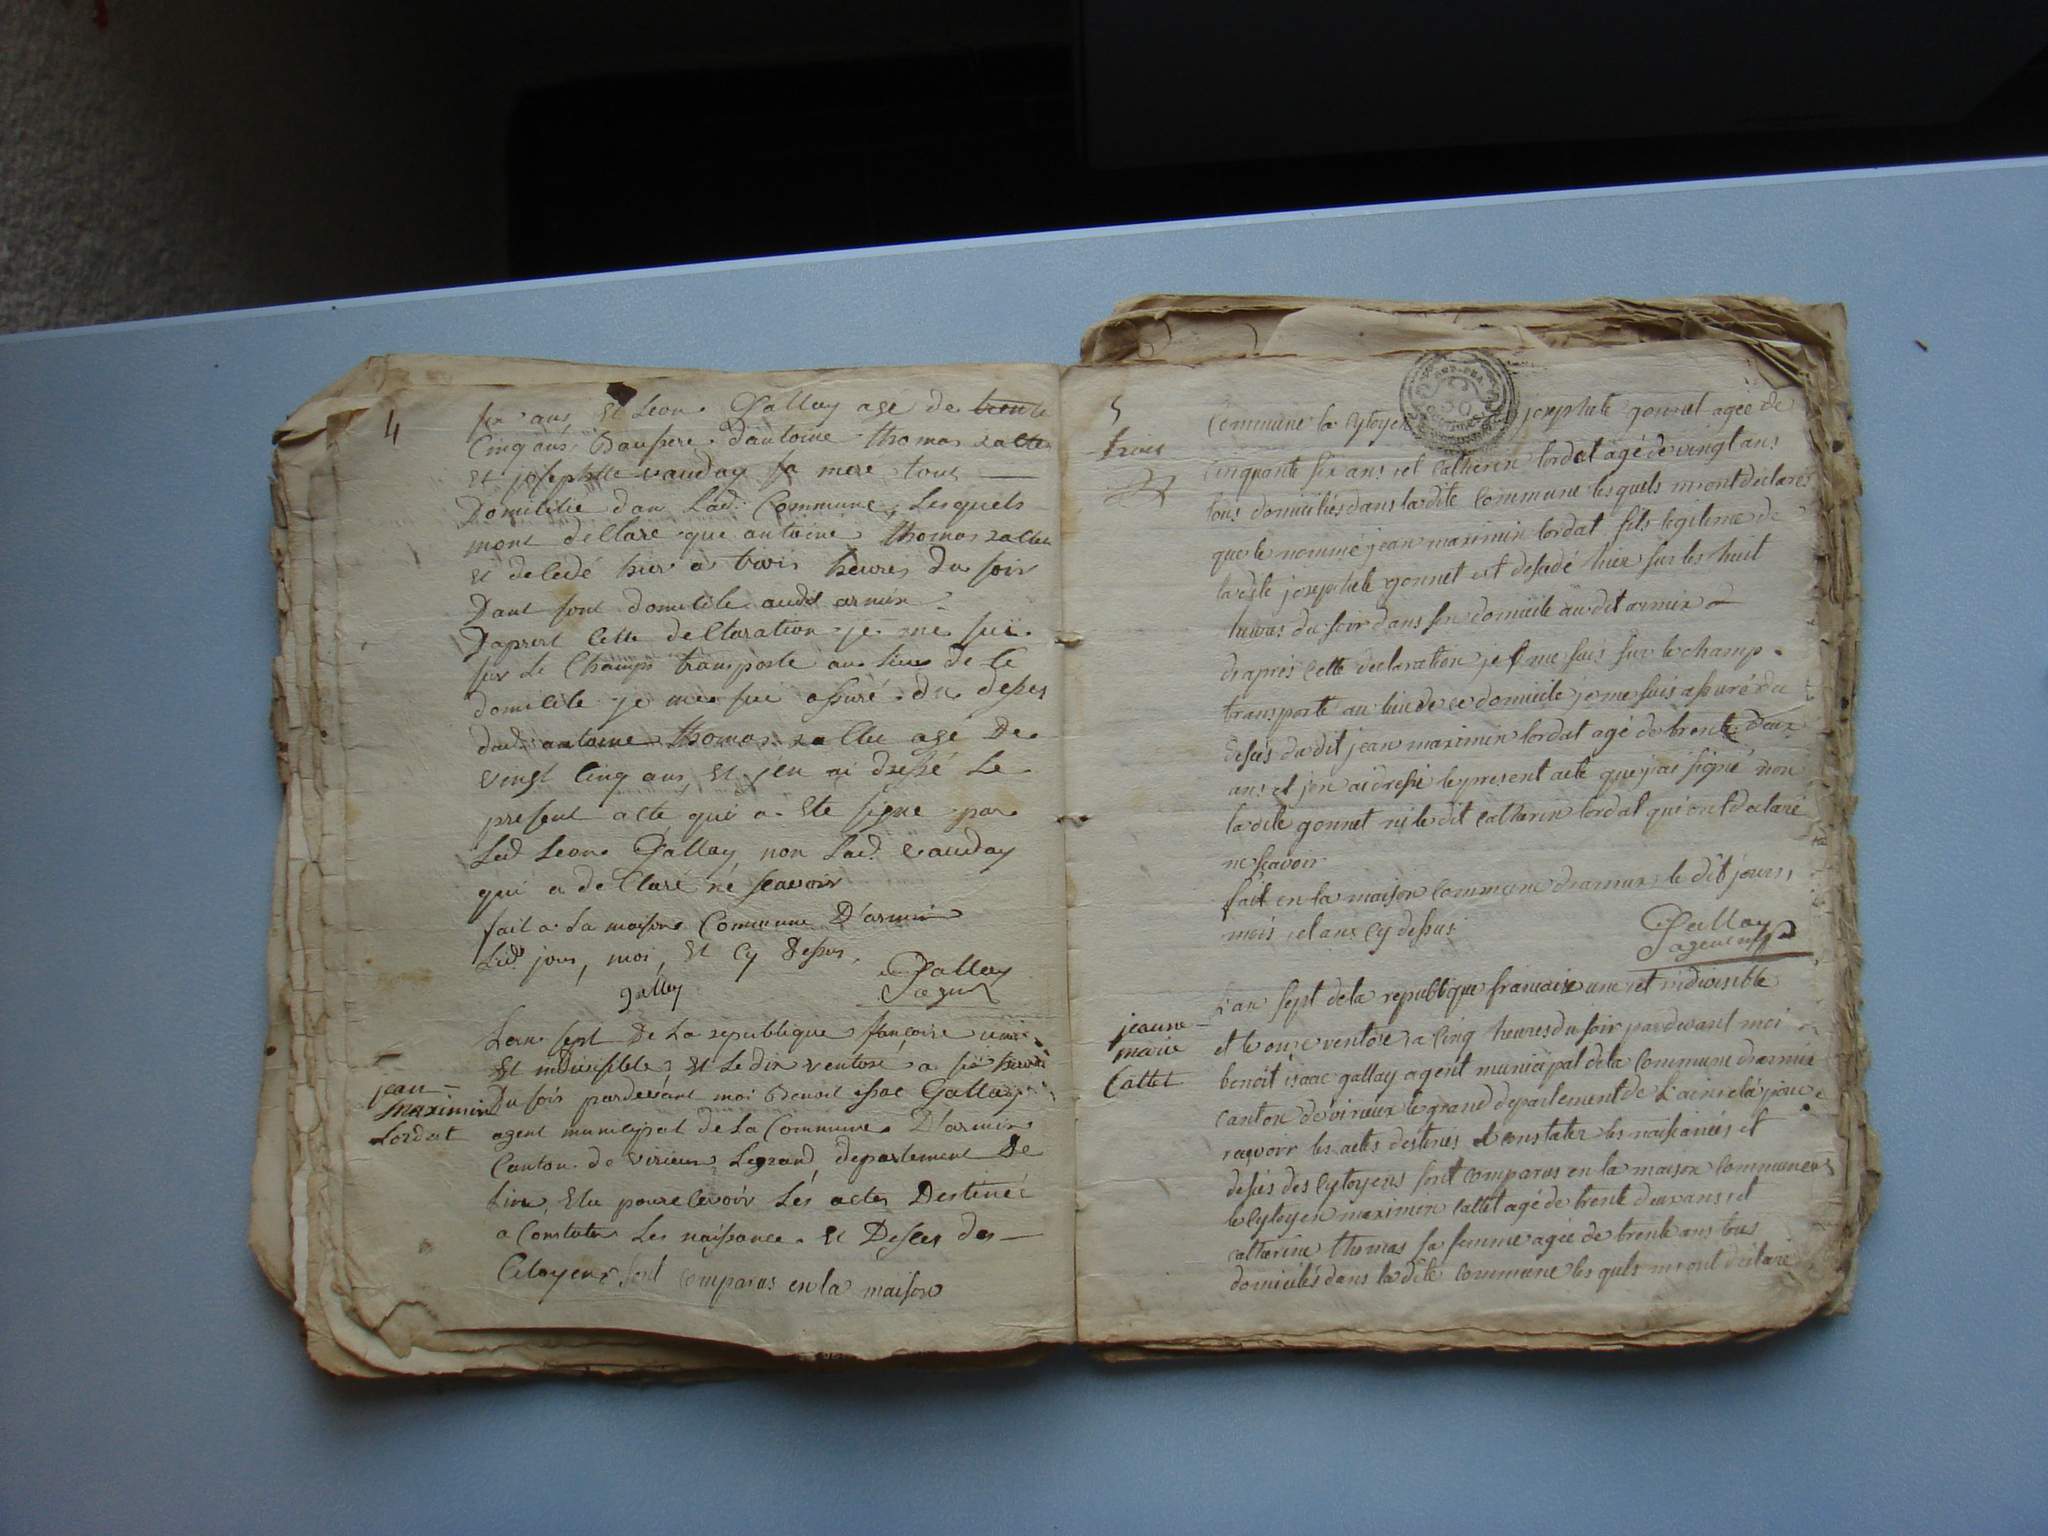 4
six ans, et Leon Gallay age de trente
Cinq ans Baupere dantoine thomas
et josephtte vauday sa mere tous
Domicilie dan Lad. Commune, Lesquels
mont dellare que antoine thomas
et decedé hier a trois heures du soir
Dant sont domicile audit armix
Daprest Cette dellaration je me suis
sur Le Champs transporte au lieux de Ce
domicile je me sui assuré du desses
dud. antoine thomas agé De
vingt Cinq ans, et jen ai dressé Le
present acte qui a ete signe par
Led Leon Gallay, non Lad. vauday
qui a de Claré né scavoir
fait a La maison Commune D'armix
Led. jour, moi, et Cy dessus,
gallay
Gallay
agent
jean
maximin
Lordat
Lan sept De La republique françoise une
et indivisible, et Le dix ventose a six heures
Du soir pardevant moi Benoit Isac Gallay
agent municipal de La Commune D'armix
Canton de virieux Legrand, departement De
Lin, elu pour recevoir Les actes Destinéé
a Constater Les naissance et Desces des
Citoyens sont comparus en la maison
5
trois
Commune la Cytoyen josephete gonnet agée de
cinquante six ans et Catherin lordat agé de vingt ans
tous domiciliés dans la dite commune lesquels m'ont declarés
que le nommé jean maximin lordat fils legitime de
la dite josephete gonnet est desadé hier sur les huit
heures du soir dans son domicile audit armix
d'après cette declaration je me suis sur le champ
transporté au lieu de ce domicile je me suis assuré du
desés du dit jean maximin lordat agé de trente deux
ans et j'en ai dressé le present acte que j'ai signé non
la dite gonnet ni le dit Catherin lordat qui ont declaré
ne scavoir
fait en la maison commune d'armix le dit jours,
mois et ans Cy dessus
Gallay
agent
jeanne
marie
Callet
L'an sept de la republique francaise une et indivisible
et le onze ventose a cinq heures du soir pardevant moi
benoit isaac gallay agent municipal de la commune d'armix
canton de virieux le grand departement de L'ain elu pour
recevoir les actes destinés a constater les naissances et
desés des cytoyens sont comparus en la maison commune
le Cytoyen maximin Callet agé de trente deux ans et
catherine thomas sa femme agée de trente ans tous
domiciliés dans la dite commune lesquels m'ont declaré